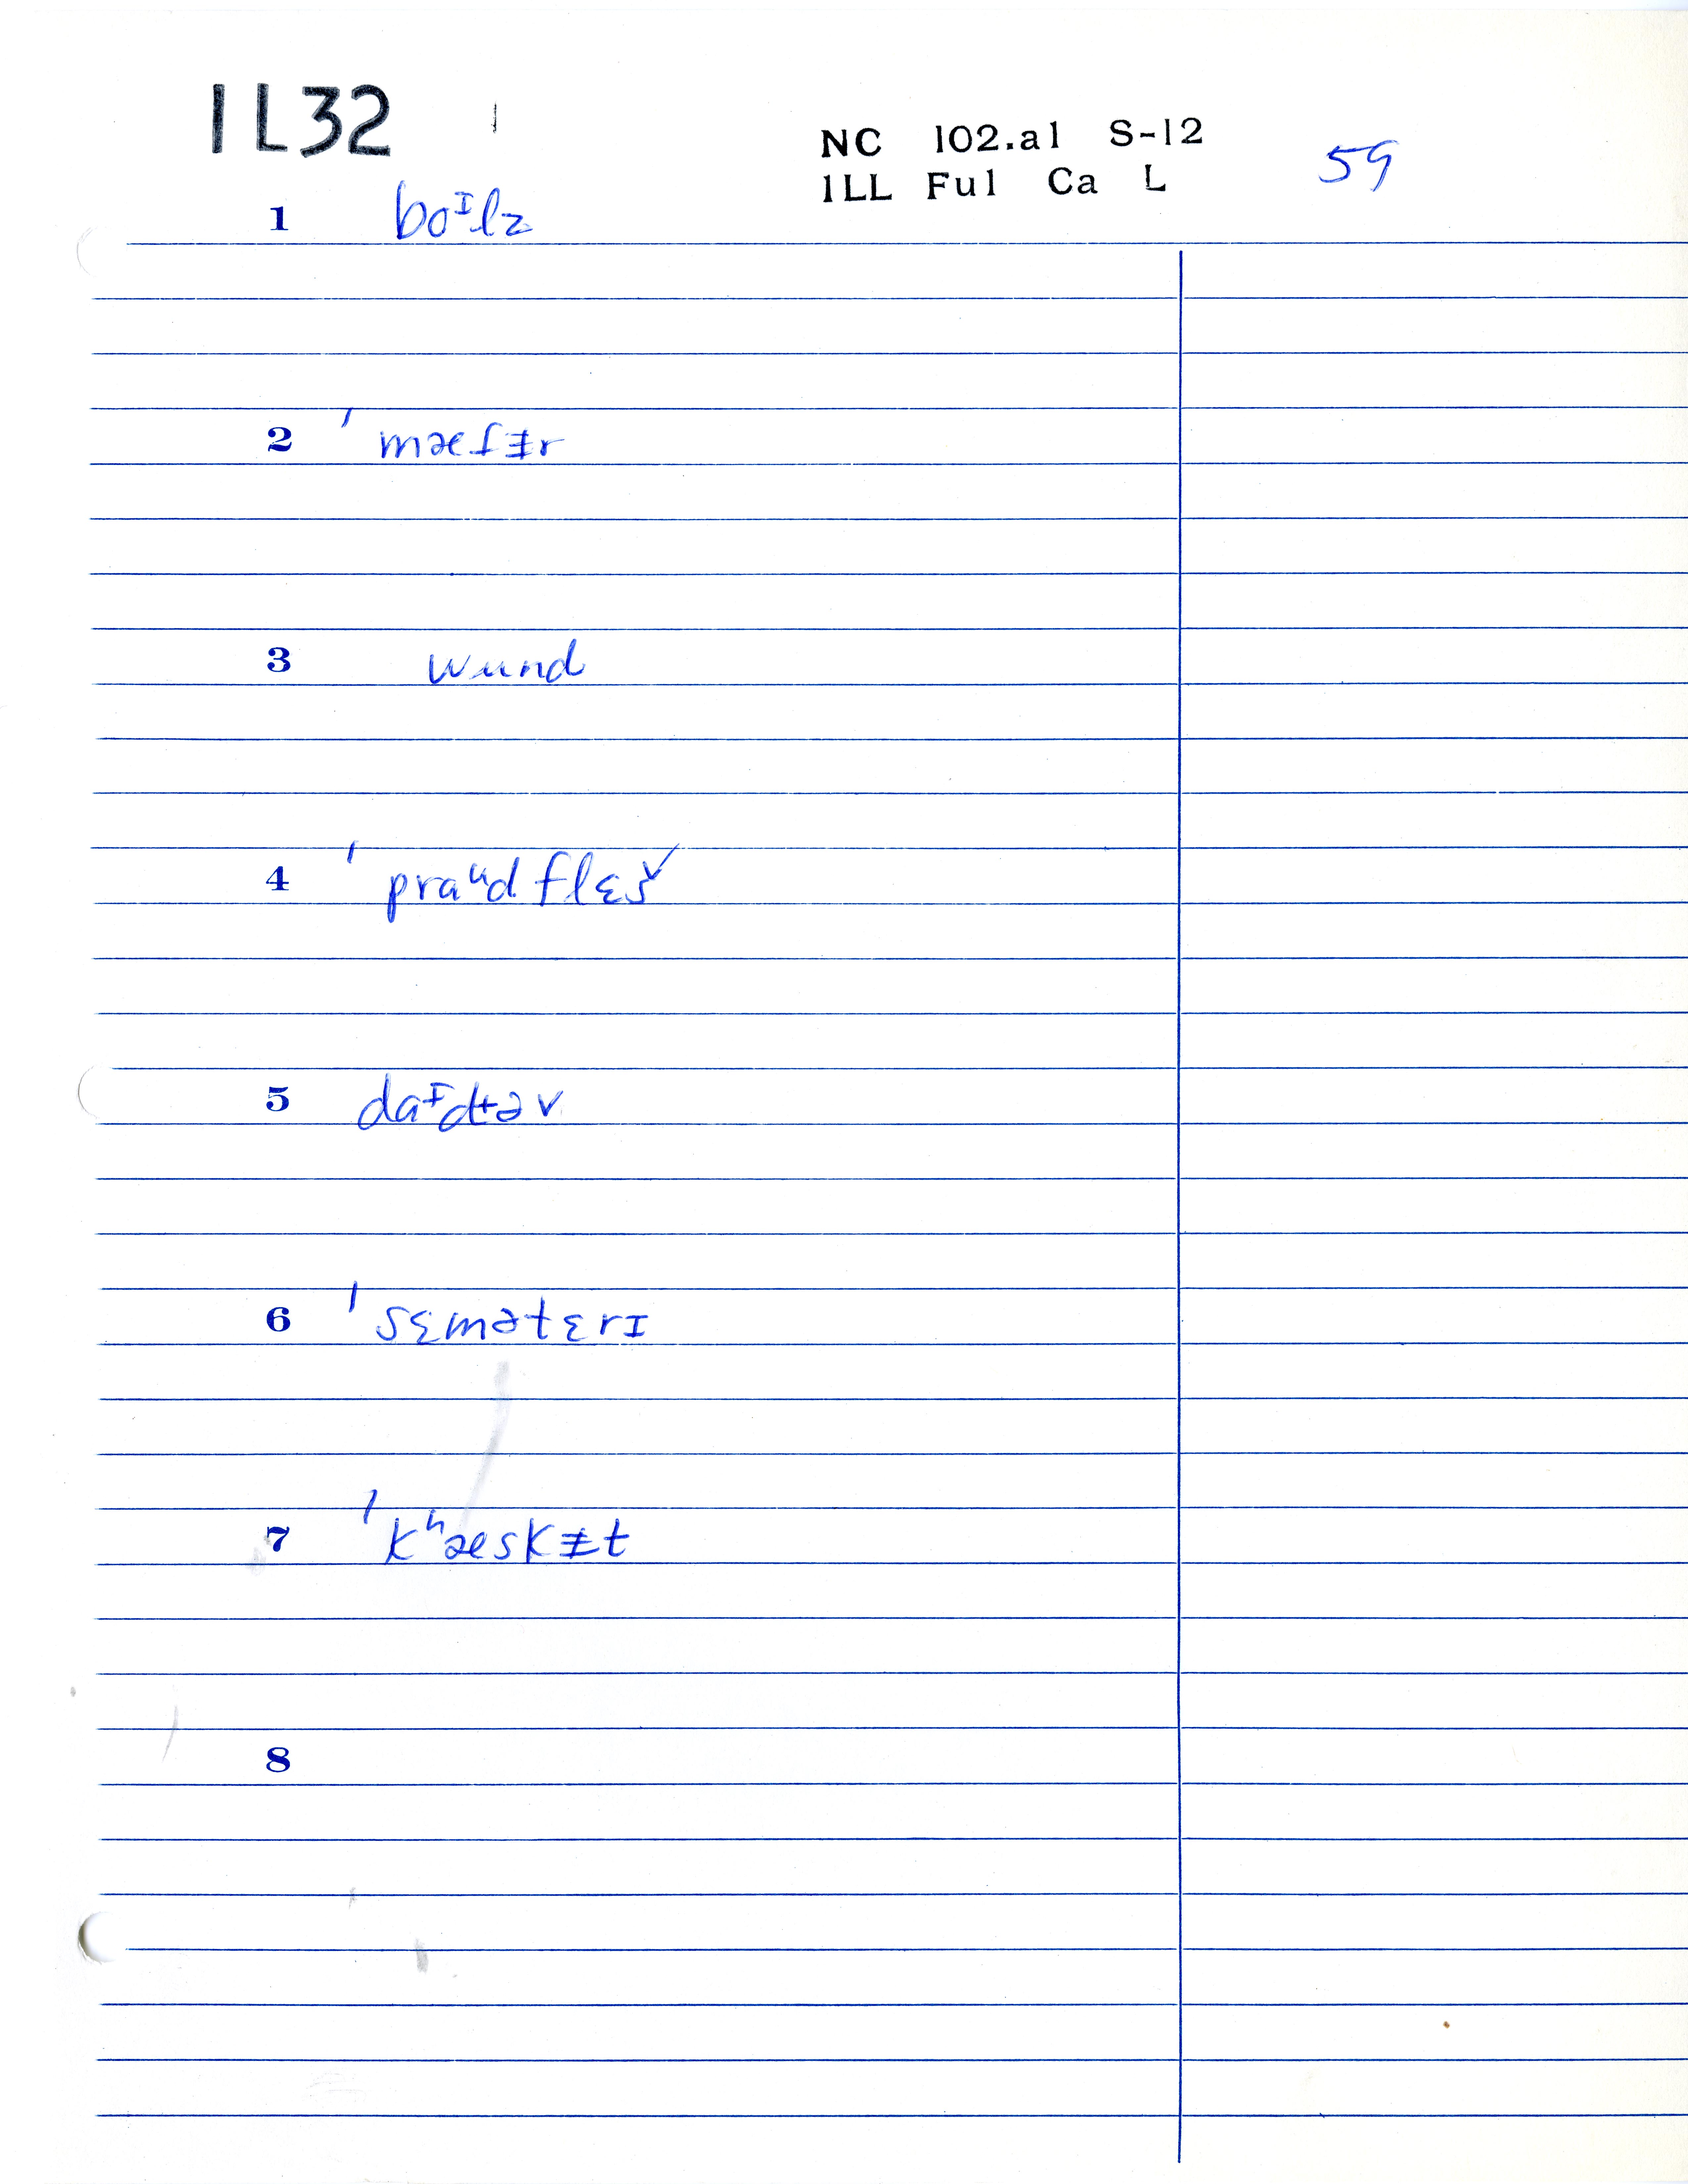 IL32
NC 102.a1 S-12
ILL Ful Ca L
59
1 boᶦlz
2 ˈmæfᵻr
3 wund
4 ˈpraᵘd flɛš
5 daᵻd̵əv
6 ˈsɛmətɛrɪ
7 ˈkʰæskᵻt
8